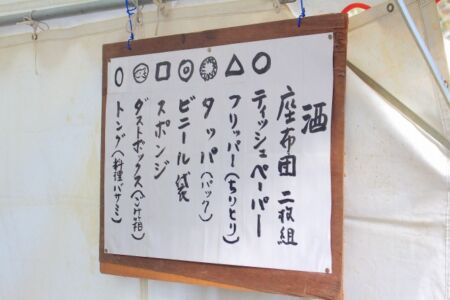 酒
座布団 二枚組
○ ティッシュペーパー
△ フリッパー(ちりとり)
タッパ(パック)
◎ ビニール袋
□ スポンジ
ダストボックス(ゴミ箱)
○ トング(料理バサミ)